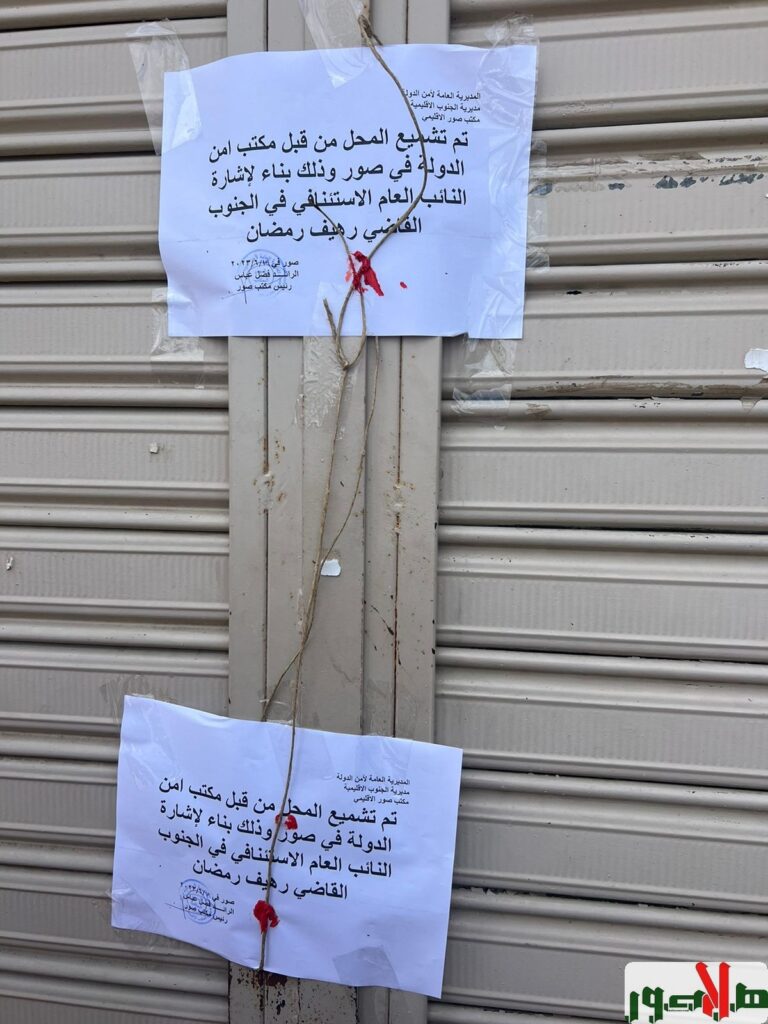 المديرية العامة لأمن الدولة
مديرية الجنوب الاقليمية
مكتب صور الاقليمي
تم تشميع المحل من قبل مكتب امن
الدولة في صور وذلك بناء لإشارة
النائب العام الاستئنافي في الجنوب
القاضي رهيف رمضان
صور في
الرائد فضل عباس
رئيس مكتب صور
المديرية العامة لأمن الدولة
مديرية الجنوب الاقليمية
مكتب صور الاقليمي
تم تشميع المحل من قبل مكتب امن
الدولة في صور وذلك بناء لإشارة
النائب العام الاستئنافي في الجنوب
القاضي رهيف رمضان
صور في
الرائد فضل عباس
رئيس مكتب صور
هلا صور